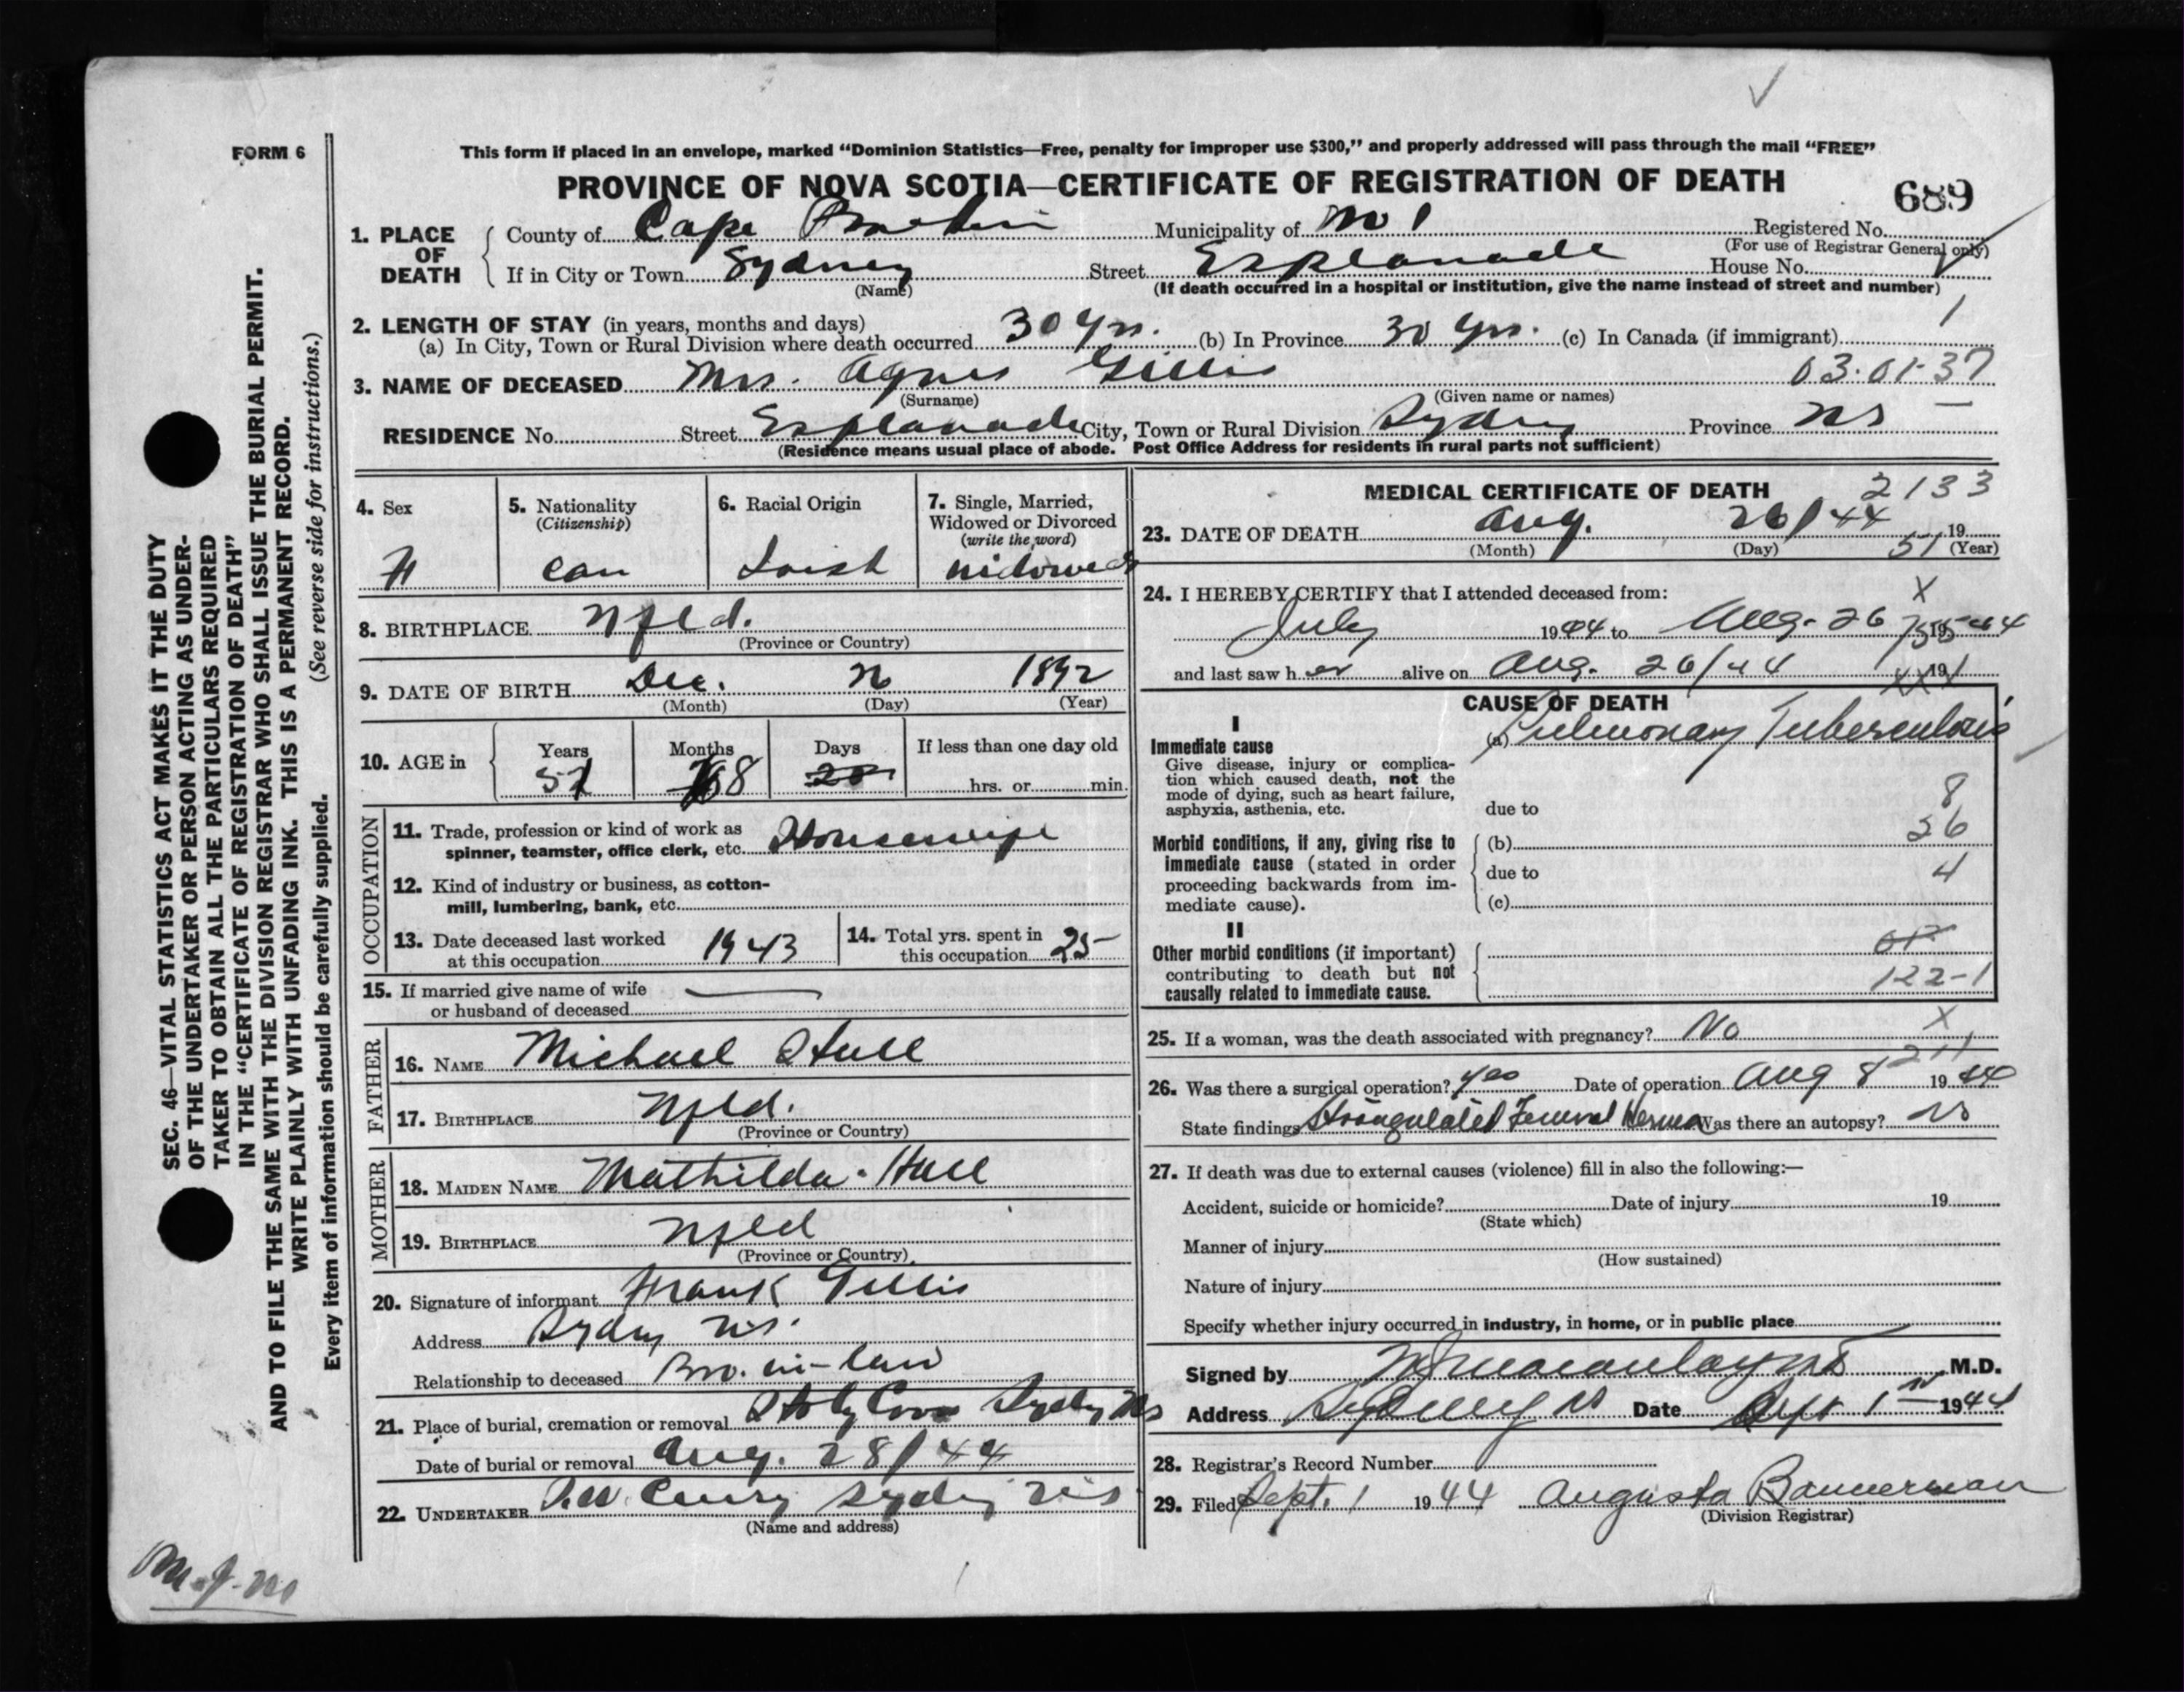 FORM 6
This form if placed in an envelope, marked “Dominion Statistics—Free, penalty for improper use $300,” and properly addressed will pass through the mail “FREE”
PROVINCE OF NOVA SCOTIA—CERTIFICATE OF REGISTRATION OF DEATH
689
1. PLACE OF DEATH
County of Cape Breton Municipality of No 1 Registered No.
(For use of Registrar General only)
If in City or Town Sydney Street Esplanade House No.
(Name) (If death occurred in a hospital or institution, give the name instead of street and number)
2. LENGTH OF STAY (in years, months and days)
1
(a) In City, Town or Rural Division where death occurred 30 yrs. (b) In Province 30 yrs. (c) In Canada (if immigrant)
3. NAME OF DECEASED Mrs. Agnes Gillis 03.01.37
(Surname) (Given name or names)
RESIDENCE No. Street Esplanade City, Town or Rural Division Sydney Province NS
(Residence means usual place of abode. Post Office Address for residents in rural parts not sufficient)
4. Sex
F
5. Nationality
(Citizenship)
Can
6. Racial Origin
Irish
7. Single, Married,
Widowed or Divorced
(write the word)
widowed
8. BIRTHPLACE Nfld.
(Province or Country)
9. DATE OF BIRTH Dec. 1892
(Month) (Day) (Year)
10. AGE in
Years Months Days If less than one day old
51 8 hrs. or min.
OCCUPATION
11. Trade, profession or kind of work as
spinner, teamster, office clerk, etc. Housewife
12. Kind of industry or business, as cotton-
mill, lumbering, bank, etc.
13. Date deceased last worked
at this occupation 1943
14. Total yrs. spent in
this occupation 25
15. If married give name of wife
or husband of deceased
FATHER
16. NAME Michael Hull
17. BIRTHPLACE Nfld.
(Province or Country)
MOTHER
18. MAIDEN NAME Mathilda Hull
19. BIRTHPLACE Nfld
(Province or Country)
20. Signature of informant Frank Gillis
Address Sydney N.S.
Relationship to deceased Bro. in-law
21. Place of burial, cremation or removal Holy Cross Sydney NS
Date of burial or removal Aug. 28/44
22. UNDERTAKER Curry Sydney N.S
(Name and address)
MEDICAL CERTIFICATE OF DEATH
2133
23. DATE OF DEATH Aug. 26/44 19
(Month) (Day) 51 (Year)
24. I HEREBY CERTIFY that I attended deceased from: X
July 1944 to Aug. 26 19 44
and last saw her alive on Aug. 26/44 19
CAUSE OF DEATH
I
Immediate cause
Give disease, injury or complica-
tion which caused death, not the
mode of dying, such as heart failure,
asphyxia, asthenia, etc.
(a) Pulmonary Tuberculosis
due to
8
Morbid conditions, if any, giving rise to
immediate cause (stated in order
proceeding backwards from im-
mediate cause).
(b) 26
due to 4
(c)
II
Other morbid conditions (if important)
contributing to death but not
causally related to immediate cause.
122-1
25. If a woman, was the death associated with pregnancy? No X
211
26. Was there a surgical operation? yes Date of operation Aug 8 19 44
State findings Strangulated Femoral Hernia Was there an autopsy? no
27. If death was due to external causes (violence) fill in also the following:—
Accident, suicide or homicide? Date of injury 19
(State which)
Manner of injury
(How sustained)
Nature of injury
Specify whether injury occurred in industry, in home, or in public place
Signed by M.D.
Address Sydney NS Date Sept 1st 1944
28. Registrar's Record Number
29. Filed Sept. 1 1944 Augusta Bannerman
(Division Registrar)
SEC. 46—VITAL STATISTICS ACT MAKES IT THE DUTY
OF THE UNDERTAKER OR PERSON ACTING AS UNDER-
TAKER TO OBTAIN ALL THE PARTICULARS REQUIRED
IN THE “CERTIFICATE OF REGISTRATION OF DEATH”
AND TO FILE THE SAME WITH THE DIVISION REGISTRAR WHO SHALL ISSUE THE BURIAL PERMIT.
WRITE PLAINLY WITH UNFADING INK. THIS IS A PERMANENT RECORD.
Every item of information should be carefully supplied. (See reverse side for instructions.)